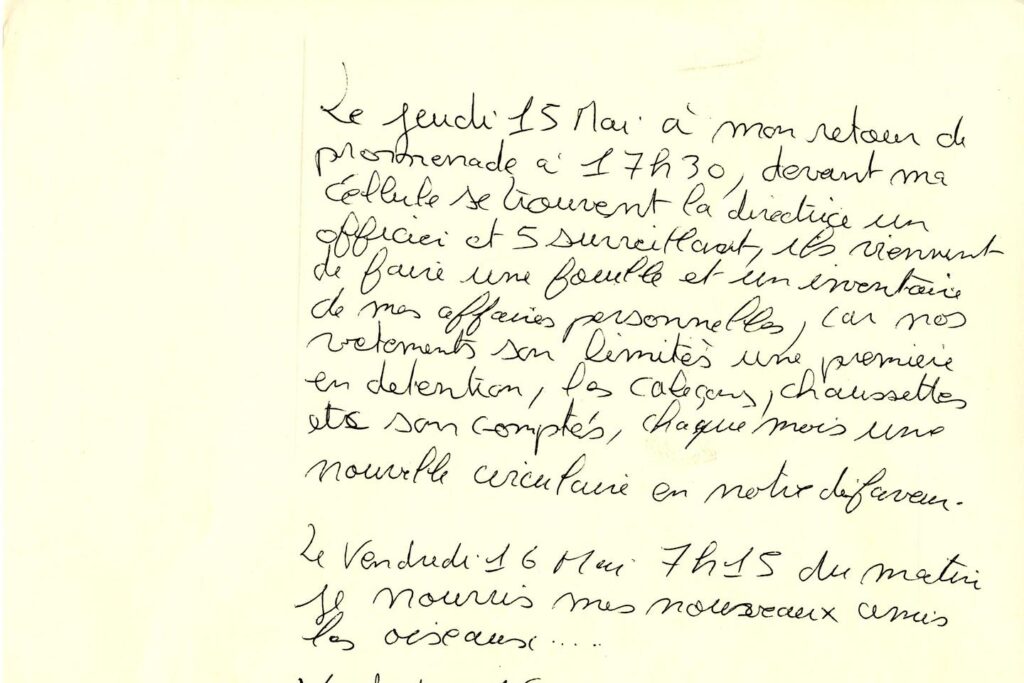 Le jeudi 15 Mai à mon retour de
promenade à 17h30, devant ma
cellule se trouvent la directrice un
officier et 5 surveillant, ils viennent
de faire une fouille et un inventaire
de mes affaires personnelles, car nos
vetements son limités une premiere
en detention, les caleçons, chaussettes
etc son comptés, chaque mois une
nouvelle circulaire en notre défaveur.
Le Vendredi 16 Mai 7h15 du matin
je nourris mes nouveaux amis
les oiseaux.....